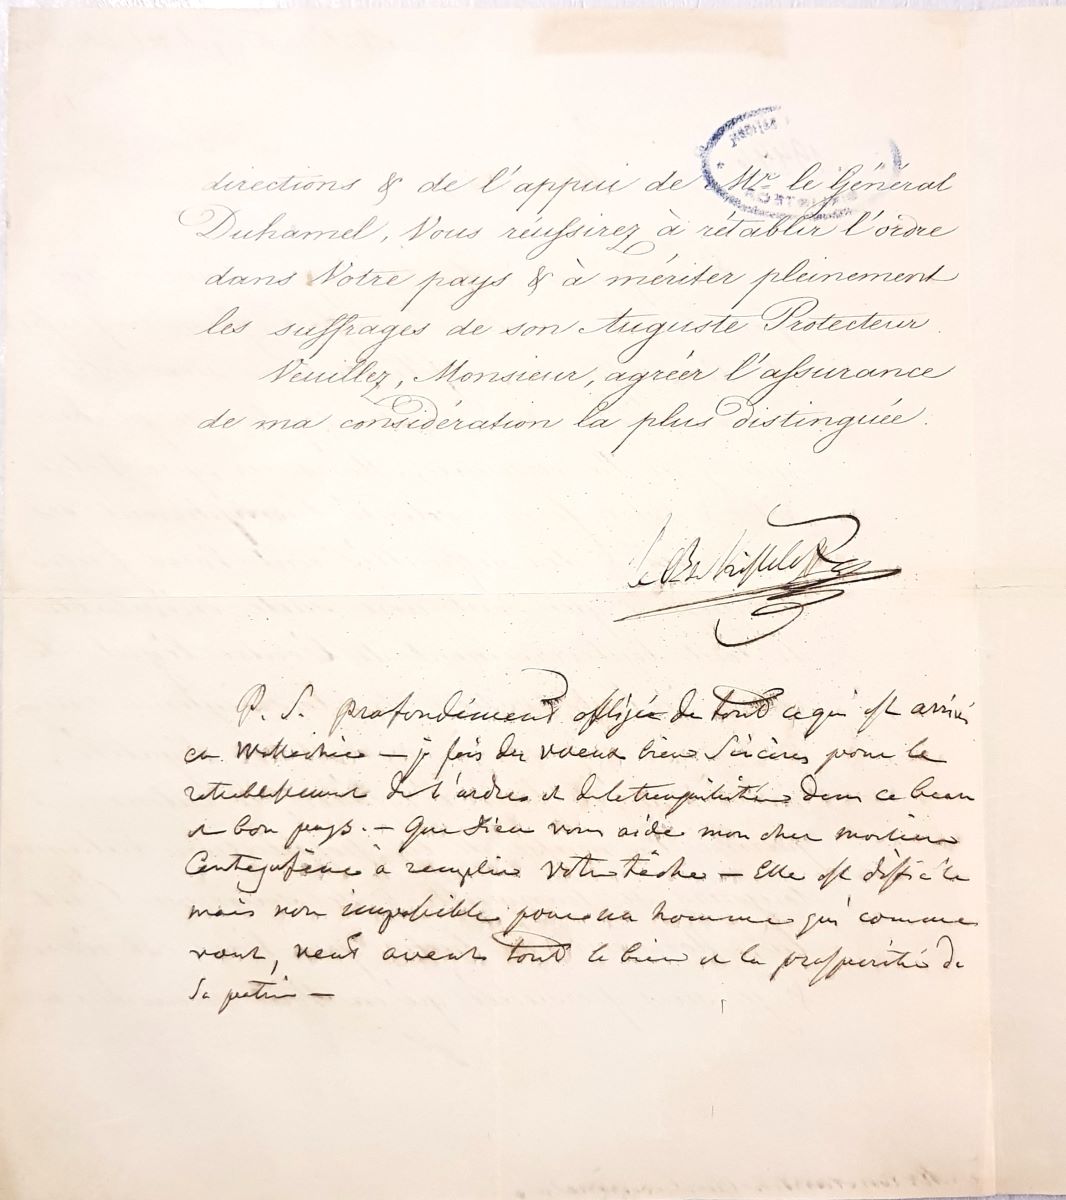 directions & de l'appui de Mr. le Général
Duhamel, Vous réussirez à rétablir l'ordre
dans Votre pays & à mériter pleinement
les suffrages de son Auguste Protecteur.
Veuillez, Monsieur, agréer l'assurance
de ma considération la plus distinguée.
P. S. profondément affligée de tout ce qui est arrivé
en Wallachie — je fais des voeux bien sincères pour le
retablissement de l'ordre et de la tranquilitée dans ce beau
et bon pays. — Que Dieu vous aide mon cher monsieur
Cantagusène à remplir votre tâche — Elle est difficile
mais non impossible pour un homme qui comme
vous, veut avant tout le bien et la prosperité de
sa patrie —